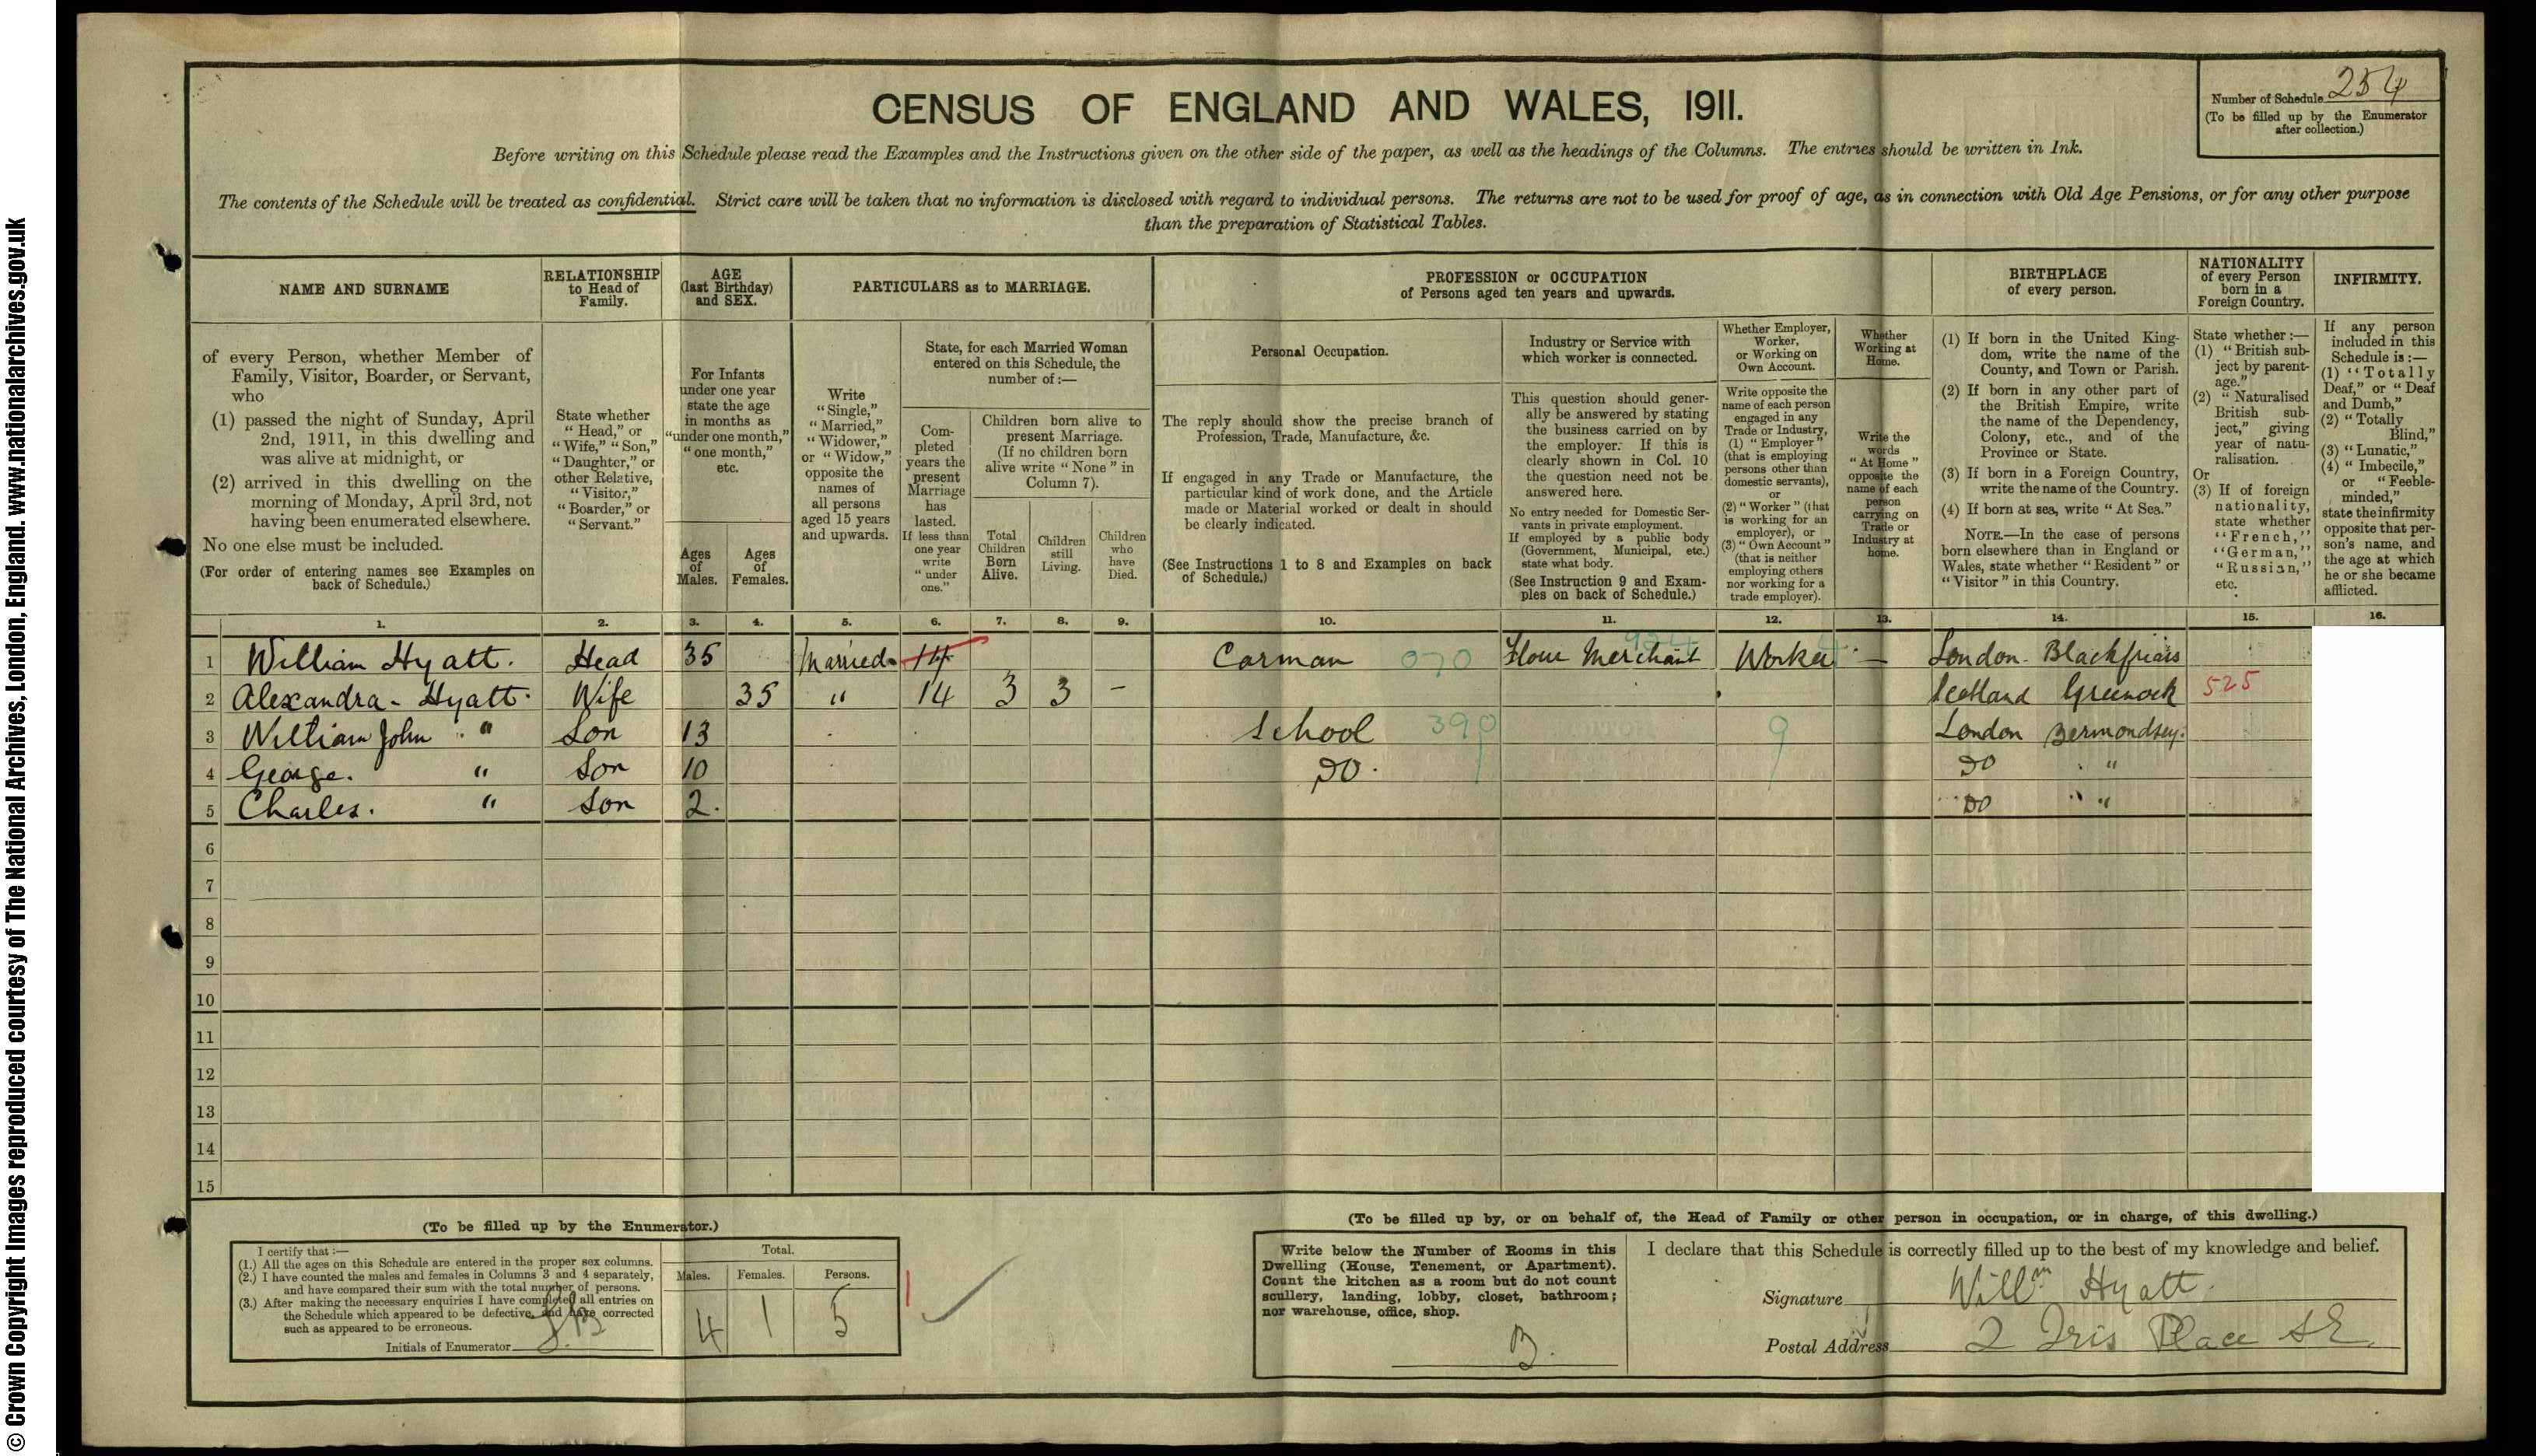 © Crown Copyright Images reproduced courtesy of The National Archives, London, England. www.nationalarchives.gov.uk
CENSUS OF ENGLAND AND WALES, 1911.
Number of Schedule 254
(To be filled up by the Enumerator after collection.)
Before writing on this Schedule please read the Examples and the Instructions given on the other side of the paper, as well as the headings of the Columns. The entries should be written in Ink.
The contents of the Schedule will be treated as confidential. Strict care will be taken that no information is disclosed with regard to individual persons. The returns are not to be used for proof of age, as in connection with Old Age Pensions, or for any other purpose
than the preparation of Statistical Tables.
NAME AND SURNAME
of every Person, whether Member of
Family, Visitor, Boarder, or Servant,
who
(1) passed the night of Sunday, April
2nd, 1911, in this dwelling and
was alive at midnight, or
(2) arrived in this dwelling on the
morning of Monday, April 3rd, not
having been enumerated elsewhere.
No one else must be included.
(For order of entering names see Examples on
back of Schedule.)
RELATIONSHIP
to Head of
Family.
State whether
"Head," or
"Wife," "Son,"
"Daughter," or
other Relative,
"Visitor,"
"Boarder," or
"Servant."
AGE
(last Birthday)
and SEX.
For Infants
under one year
state the age
in months as
"under one month,"
"one month,"
etc.
Ages
of
Males.
Ages
of
Females.
PARTICULARS as to MARRIAGE.
Write
"Single,"
"Married,"
"Widower,"
or "Widow,"
opposite the
names of
all persons
aged 15 years
and upwards.
State, for each Married Woman
entered on this Schedule, the
number of:—
Com-
pleted
years the
present
Marriage
has
lasted.
If less than
one year
write
"under
one."
Children born alive to
present Marriage.
(If no children born
alive write "None" in
Column 7).
Total
Children
Born
Alive.
Children
still
Living.
Children
who
have
Died.
PROFESSION or OCCUPATION
of Persons aged ten years and upwards.
Personal Occupation.
The reply should show the precise branch of
Profession, Trade, Manufacture, &c.
If engaged in any Trade or Manufacture, the
particular kind of work done, and the Article
made or Material worked or dealt in should
be clearly indicated.
(See Instructions 1 to 8 and Examples on back
of Schedule.)
Industry or Service with
which worker is connected.
This question should gener-
ally be answered by stating
the business carried on by
the employer. If this is
clearly shown in Col. 10
the question need not be
answered here.
No entry needed for Domestic Ser-
vants in private employment.
If employed by a public body
(Government, Municipal, etc.)
state what body.
(See Instruction 9 and Exam-
ples on back of Schedule.)
Whether Employer,
Worker,
or Working on
Own Account.
Write opposite the
name of each person
engaged in any
Trade or Industry,
(1) "Employer"
(that is employing
persons other than
domestic servants),
or
(2) "Worker" (that
is working for an
employer), or
(3) "Own Account"
(that is neither
employing others
nor working for a
trade employer).
Whether
Working at
Home.
Write the
words
"At Home"
opposite the
name of each
person
carrying on
Trade or
Industry at
home.
BIRTHPLACE
of every person.
(1) If born in the United King-
dom, write the name of the
County, and Town or Parish.
(2) If born in any other part of
the British Empire, write
the name of the Dependency,
Colony, etc., and of the
Province or State.
(3) If born in a Foreign Country,
write the name of the Country.
(4) If born at sea, write "At Sea."
NOTE.—In the case of persons
born elsewhere than in England or
Wales, state whether "Resident" or
"Visitor" in this Country.
NATIONALITY
of every Person
born in a
Foreign Country.
State whether:—
(1) "British sub-
ject by parent-
age."
(2) "Naturalised
British sub-
ject," giving
year of natu-
ralisation.
Or
(3) If of foreign
nationality,
state whether
"French,"
"German,"
"Russian,"
etc.
INFIRMITY.
If any person
included in this
Schedule is:—
(1) "Totally
Deaf," or "Deaf
and Dumb,"
(2) "Totally
Blind,"
(3) "Lunatic,"
(4) "Imbecile,"
or "Feeble-
minded,"
state the infirmity
opposite that per-
son's name, and
the age at which
he or she became
afflicted.
1. 2. 3. 4. 5. 6. 7. 8. 9. 10. 11. 12. 13. 14. 15. 16.
1 William Hyatt. Head 35 Married 14 Carman 070 Flour Merchant Worker — London Blackfriars
2 Alexandra Hyatt Wife 35 " 14 3 3 – Scotland Greenock 525
3 William John " Son 13 School 390 9 London Bermondsey.
4 George. " Son 10 Do. Do "
5 Charles. " Son 2. Do "
6
7
8
9
10
11
12
13
14
15
(To be filled up by the Enumerator.)
I certify that:—
(1.) All the ages on this Schedule are entered in the proper sex columns.
(2.) I have counted the males and females in Columns 3 and 4 separately,
and have compared their sum with the total number of persons.
(3.) After making the necessary enquiries I have completed all entries on
the Schedule which appeared to be defective, and have corrected
such as appeared to be erroneous.
Initials of Enumerator
Total.
Males. Females. Persons.
4 1 5
(To be filled up by, or on behalf of, the Head of Family or other person in occupation, or in charge, of this dwelling.)
Write below the Number of Rooms in this
Dwelling (House, Tenement, or Apartment).
Count the kitchen as a room but do not count
scullery, landing, lobby, closet, bathroom;
nor warehouse, office, shop.
I declare that this Schedule is correctly filled up to the best of my knowledge and belief.
Signature Willm Hyatt.
Postal Address 2 Iris Place SE